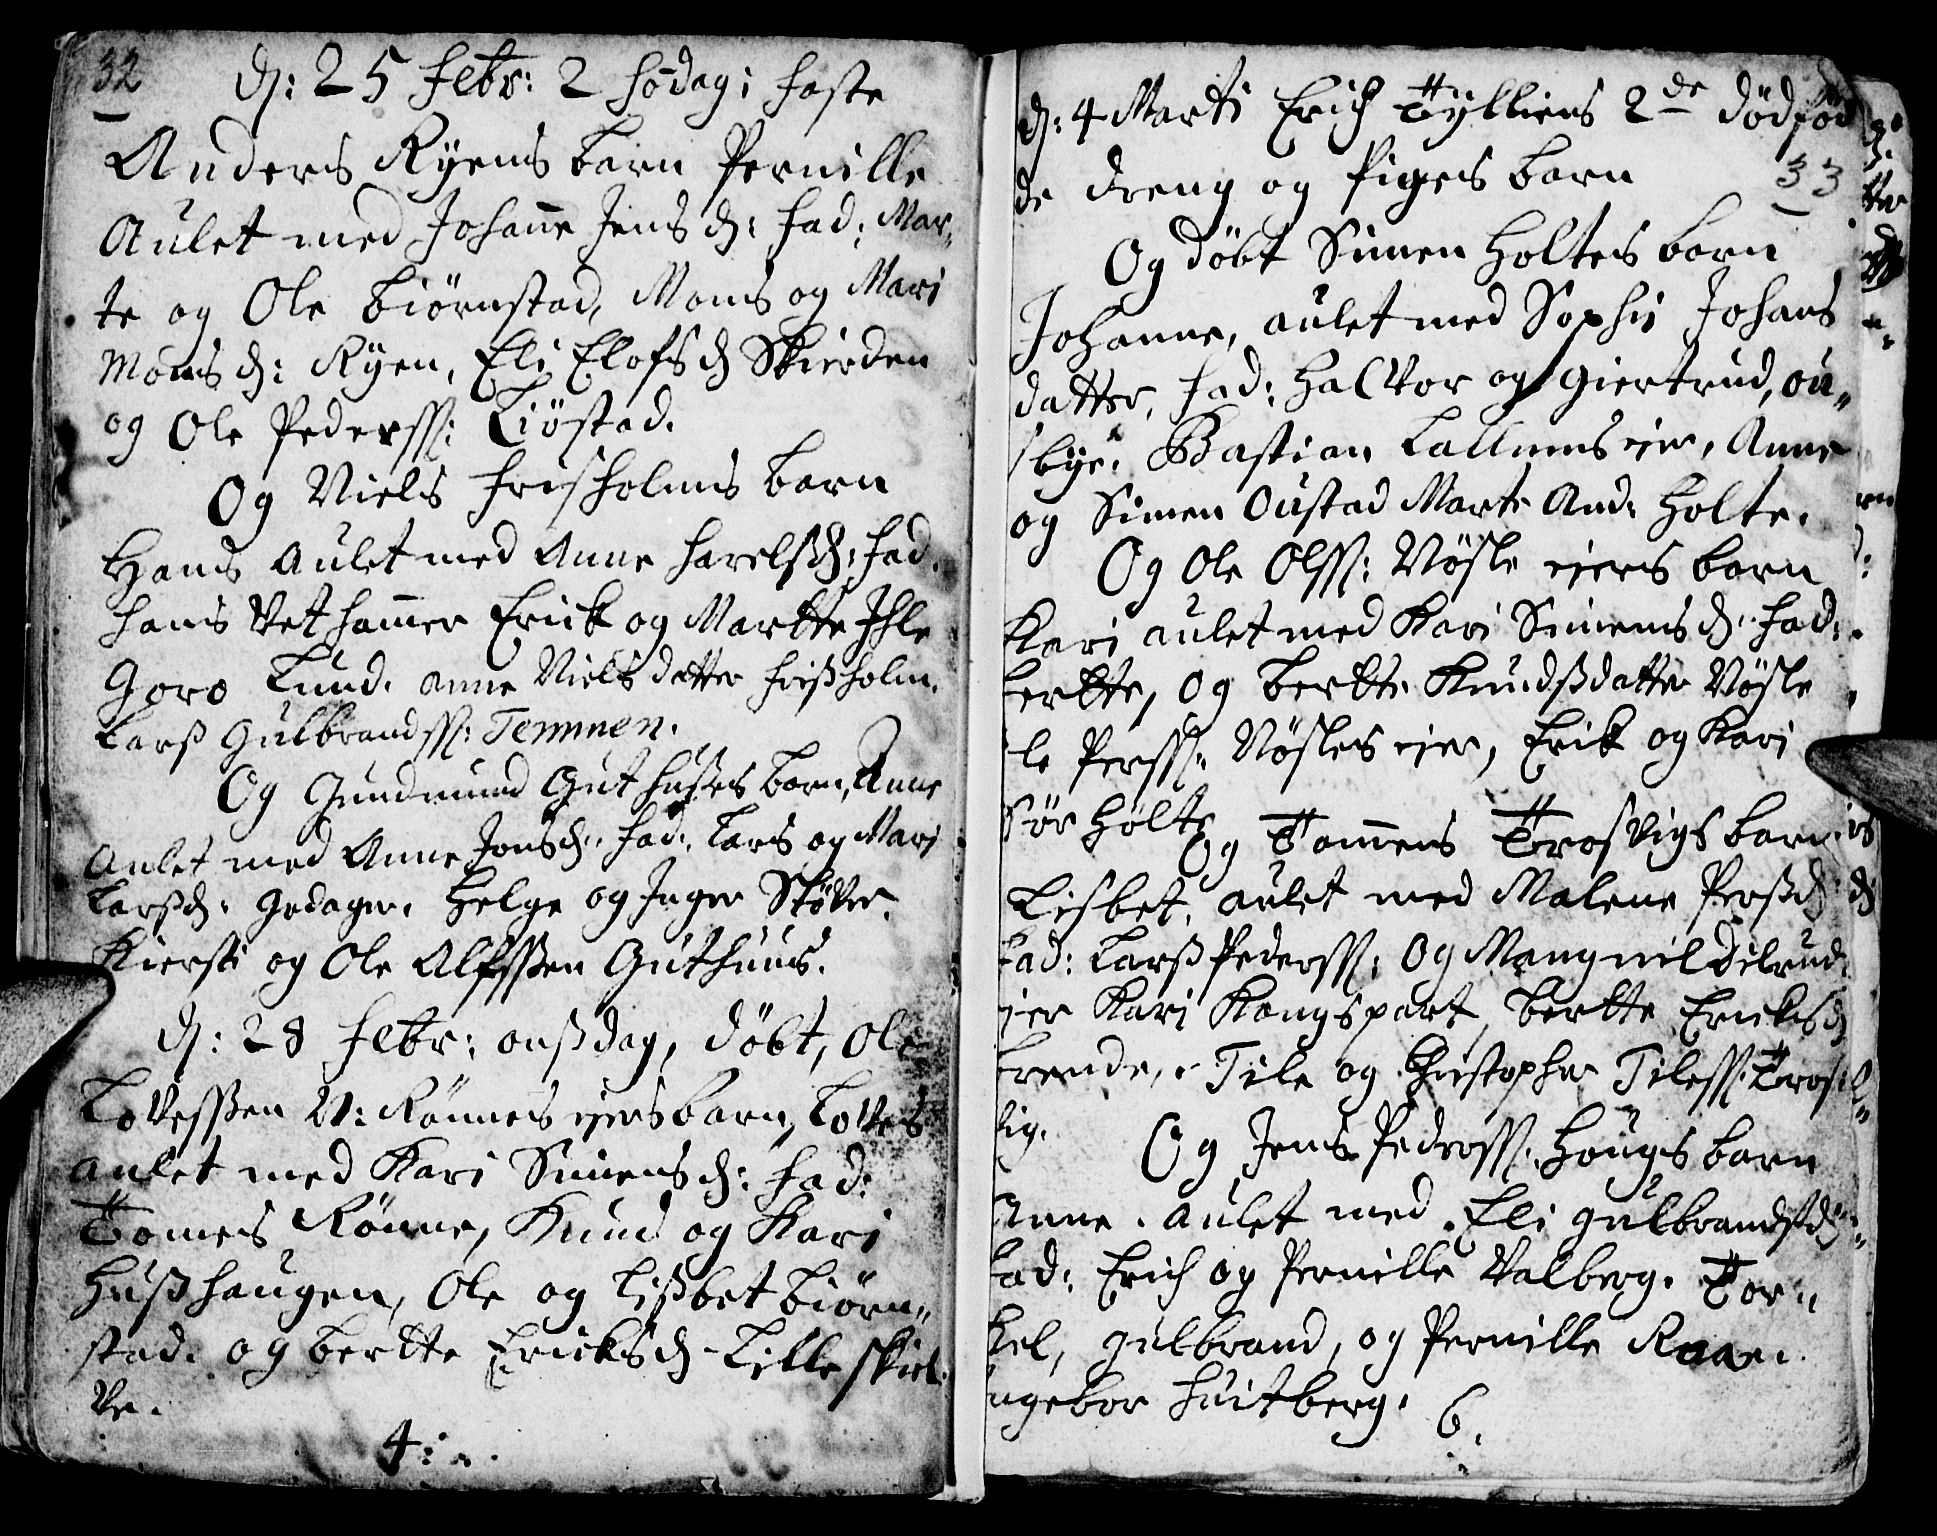 32
d: 25 Febr: 2 Södag i Faste
Anders Ryens barn Pernille
Aulet med Johane Jens d: Fad: Mar-
te og Ole Biørnstad, Mons og Mari
Mons d: Ryen, Eli Elofs d Skierden
og Ole Pederss: Liöstad.
Og Niels Frisholms barn
Hans Aulet med Anne Harelsd: Fad.
Hans Vethamer Erick og Martte Ihle
Goro Lund. Anne Niels datter Frisholm.
Larß Gulbrandss: Temmen.
Og Gundmund Guthuses barn, Anne
Aulet med Anne Jonsd: Fad: Lars og Mari
Larßd: Godager. Helge og Inger Stöver.
Kiersti og Ole Alfssen Guthuus.
d: 28 Febr: onßdag, döbt, Ole
Lovessen N: Rönnes eiersbarn, Loves
aulet med Kari Simens d: Fad:
Tomes Rönne, Knud og Kari
Hußhaugen, Ole og Lißbet Biørn-
stad. og Bertte Ericks d Lille skiel-
ve.
4:
d: 4 Marti Erich Tylliens 2de dödföd
de dreng og Piges barn
33
Og döbt Simen Holtes barn
Johanne, aulet med Sophi Johans
datter, Fad: Halvor og Giertrud, Ou-
sbye. Bastian Lallums eier, Anne
og Simen Oustad Marte And: Holte.
Og Ole Olss: Nøsle eiers barn
Kari aulet med Kari Simens d: Fad:
bertte, og bertte Knudsdatter Nøsle
le Perss: Nøsles eier, Erik og Kari
Sör Holte
Og Tomens Trosvigs barn
Lisbet, aulet med Malene Perßd:
Fad: Larß Pederss: Og Mangnil dilrud
ier Kari Kongspart, bertte Ericks d
brende, Tile og Christopher Tiless: Tros-
vig.
Og Jens Pederss: Hougs barn
Anne. aulet med Eli Gulbrandsd:
Fad: Erich og Pernille Valberg. Tor-
kel, Gulbrand, og Pernille Raaen.
ngebor Huitberg.
6.